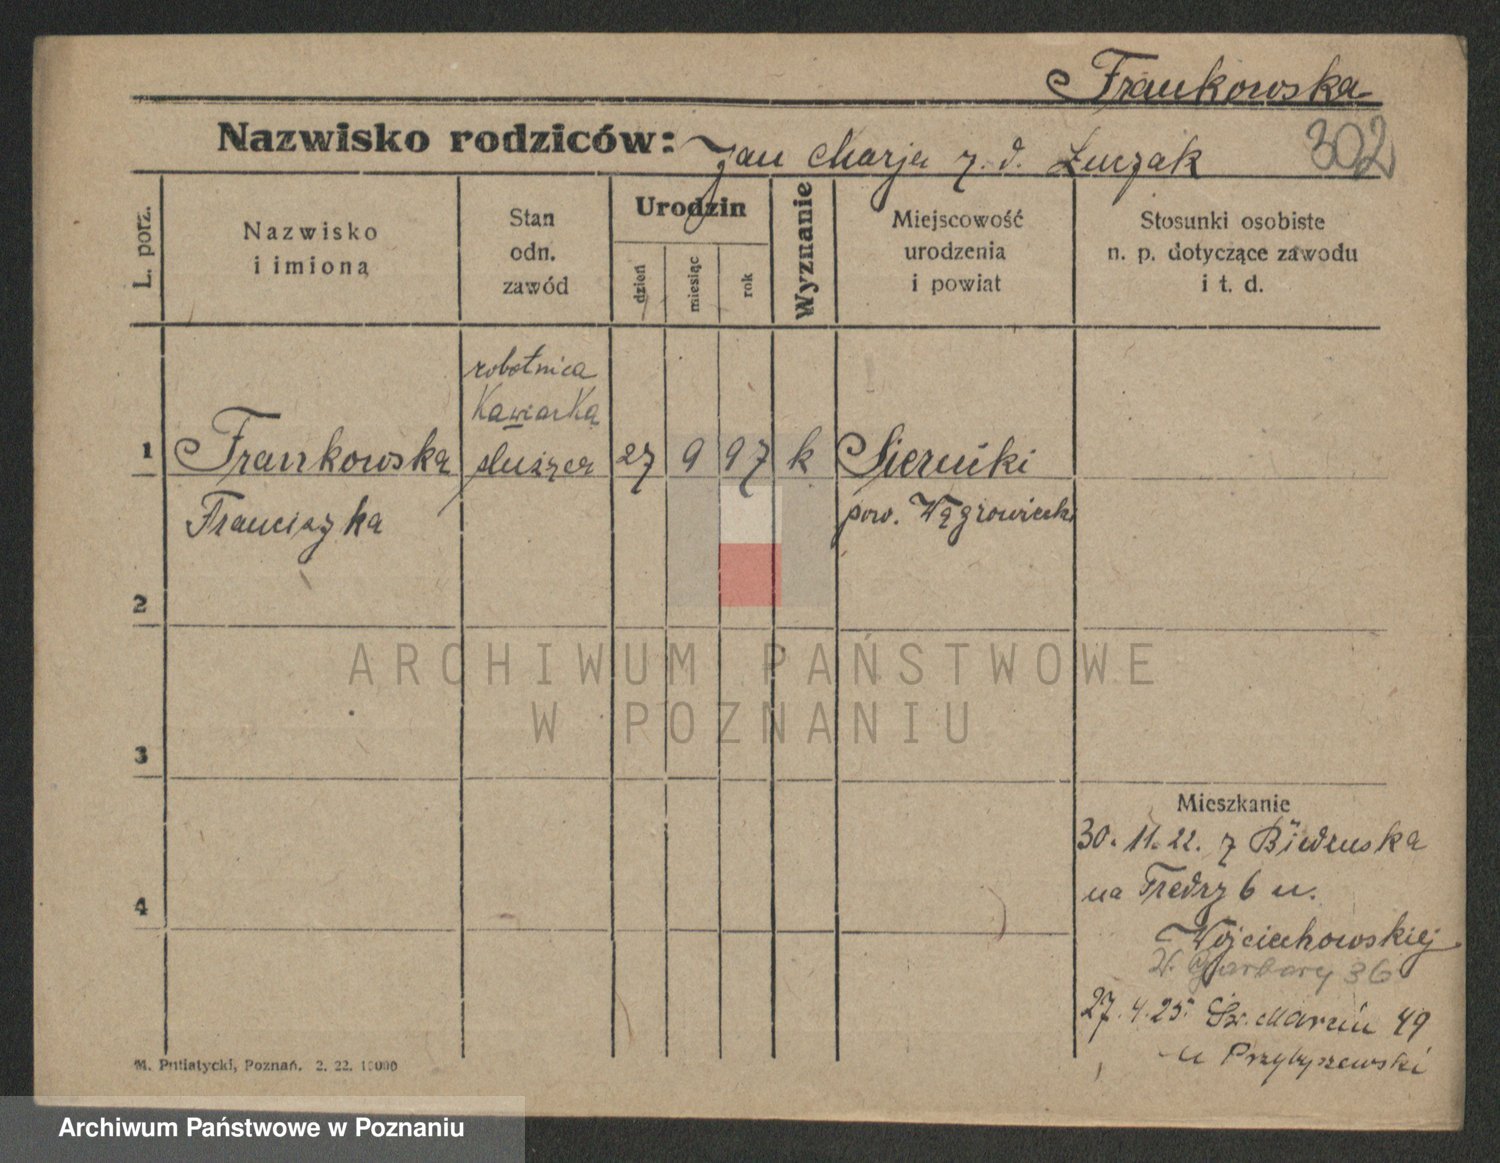 Frankowska
302
Nazwisko rodziców: Jan Marja z. d. Łuczak
L. porz.
Nazwisko
i imioną
Stan
odn.
zawód
Urodzin
dzień
miesiąc
rok
Wyznanie
Miejscowość
urodzenia
i powiat
Stosunki osobiste
n. p. dotyczące zawodu
i t. d.
robotnica
Kawiarka
1 Frankowska służąca 27 9 97 k Sierniki
Franciszka pow. Wągrowiecki
2
ARCHIWUM PAŃSTWOWE
W POZNANIU
3
Mieszkanie
30. 11. 22. z Biedruska
na Fredry 6 u.
4
Wojciechowskiej
W. Garbary 36
27. 4. 25. Św. Marcin 49
u Przybyszewski
M. Putiatycki, Poznań. 2. 22. 10000
Archiwum Państwowe w Poznaniu